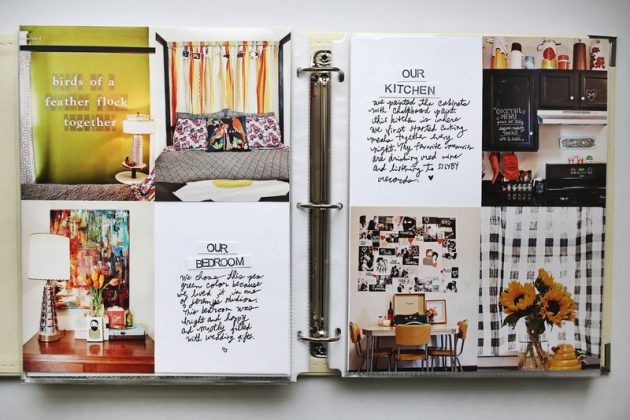 birds of a
feather flock
together
OUR
BEDROOM
We chose this pea
green color because
we loved it in one of
This bedroom was
bright and happy
and mostly filled
with wedding gifts.
OUR
KITCHEN
We painted the cabinets
with chalkboard paint.
this kitchen is where
we first started cooking
meals together every
night. My favorite memories
are drinking red wine
and listening to
records.
COCKTAIL
MENU